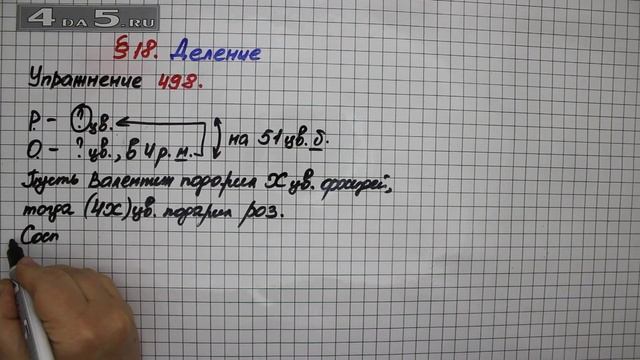 4DA5.RU
§18. Деление
Упражнение 498.
Р. - ? цв.
О. - ? цв., в 4 р. м.
на 51 цв. б.
Пусть Валентин подарил X цв. орхидей,
тогда (4X) цв. подарил роз.
Сосп